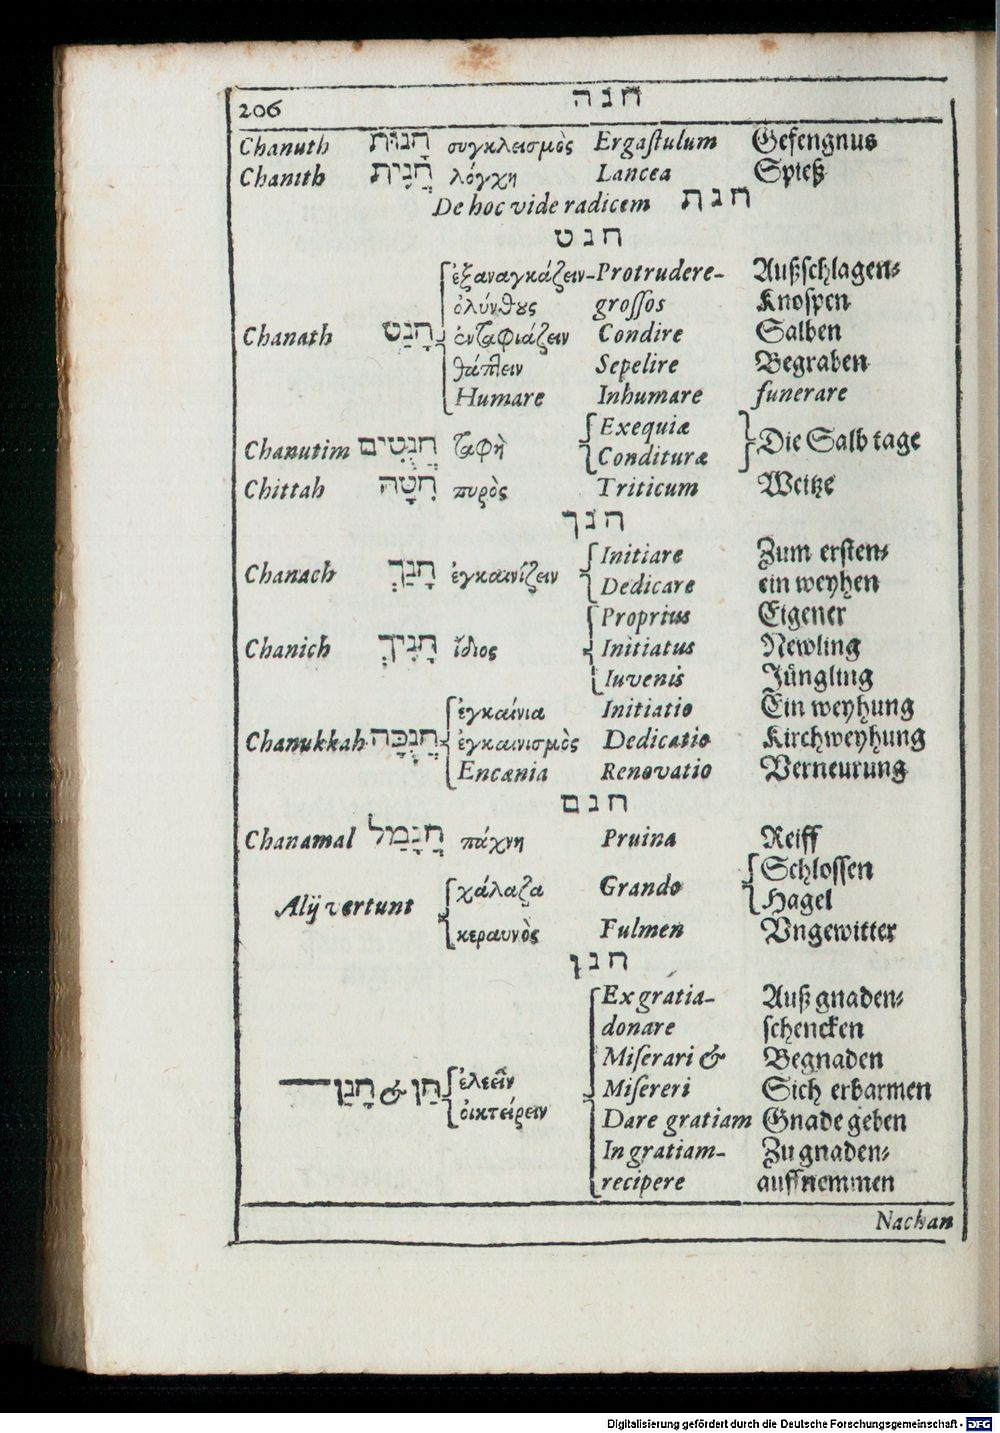 206 חנה
Chanuth חָנוּת συγκλεισμὸς Ergaſtulum Gefengnus
Chanith חֲנִית λόγχη Lancea Spieß
De hoc vide radicem חנת
חנט
ἐξαναγκάζειν- Protrudere- Außſchlagen⸗
ὀλύνθȣς groſſos Knoſpen
Chanath חָנַט ἐνταφιάζειν Condire Salben
θάπτειν Sepelire Begraben
Humare Inhumare funerare
Exequiæ
Chanutim חֲנֻטִים ταφὴ Die Salb tage
Condituræ
Chittah חִטָּה πυρὸς Triticum Weitze
חנך
Initiare Zum erſten⸗
Chanach חָנַךְ ἐγκαινίζειν
Dedicare ein weyhen
Proprius Eigener
Chanich חָנִיךְ ἴδιος Initiatus Newling
Iuvenis Jüngling
ἐγκαίνια Initiatio Ein weyhung
Chanukkah חֲנֻכָּה ἐγκαινισμὸς Dedicatio Kirchweyhung
Encænia Renovatio Verneurung
חנם
Chanamal חֲנָמַל πάχνη Pruina Reiff
Schloſſen
Alij vertunt χάλαζα Grando
Hagel
κεραυνὸς Fulmen Vngewitter
חנן
Ex gratia- Auß gnaden⸗
donare ſchencken
Miſerari & Begnaden
חַן & חָנַן ἐλεεῖν Miſereri Sich erbarmen
οἰκτείρειν Dare gratiam Gnade geben
In gratiam- Zu gnaden⸗
recipere auffnemmen
Nachan
Digitalisierung gefördert durch die Deutsche Forschungsgemeinschaft - DFG